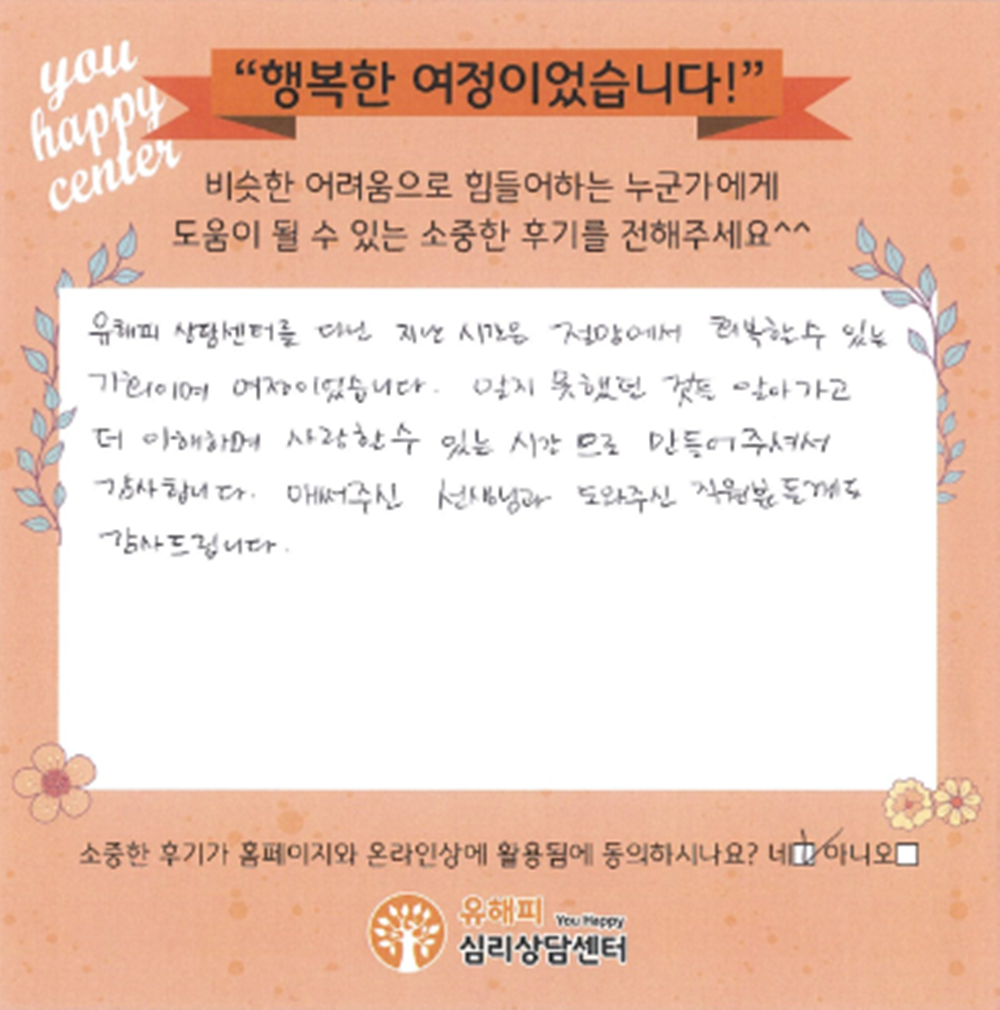 you
happy
center
“행복한 여정이었습니다!”
비슷한 어려움으로 힘들어하는 누군가에게
도움이 될 수 있는 소중한 후기를 전해주세요^^
유해피 상담센터를 다닌 지난 시간은 절망에서 회복할수 있는
기회이며 여정이었습니다. 알지 못했던 것들 알아가고
더 이해하며 사랑할수 있는 시간으로 만들어주셔서
감사합니다. 애써주신 선생님과 도와주신 직원분들께도
감사드립니다.
소중한 후기가 홈페이지와 온라인상에 활용됨에 동의하시나요? 네☑ 아니오□
유해피 You Happy
심리상담센터